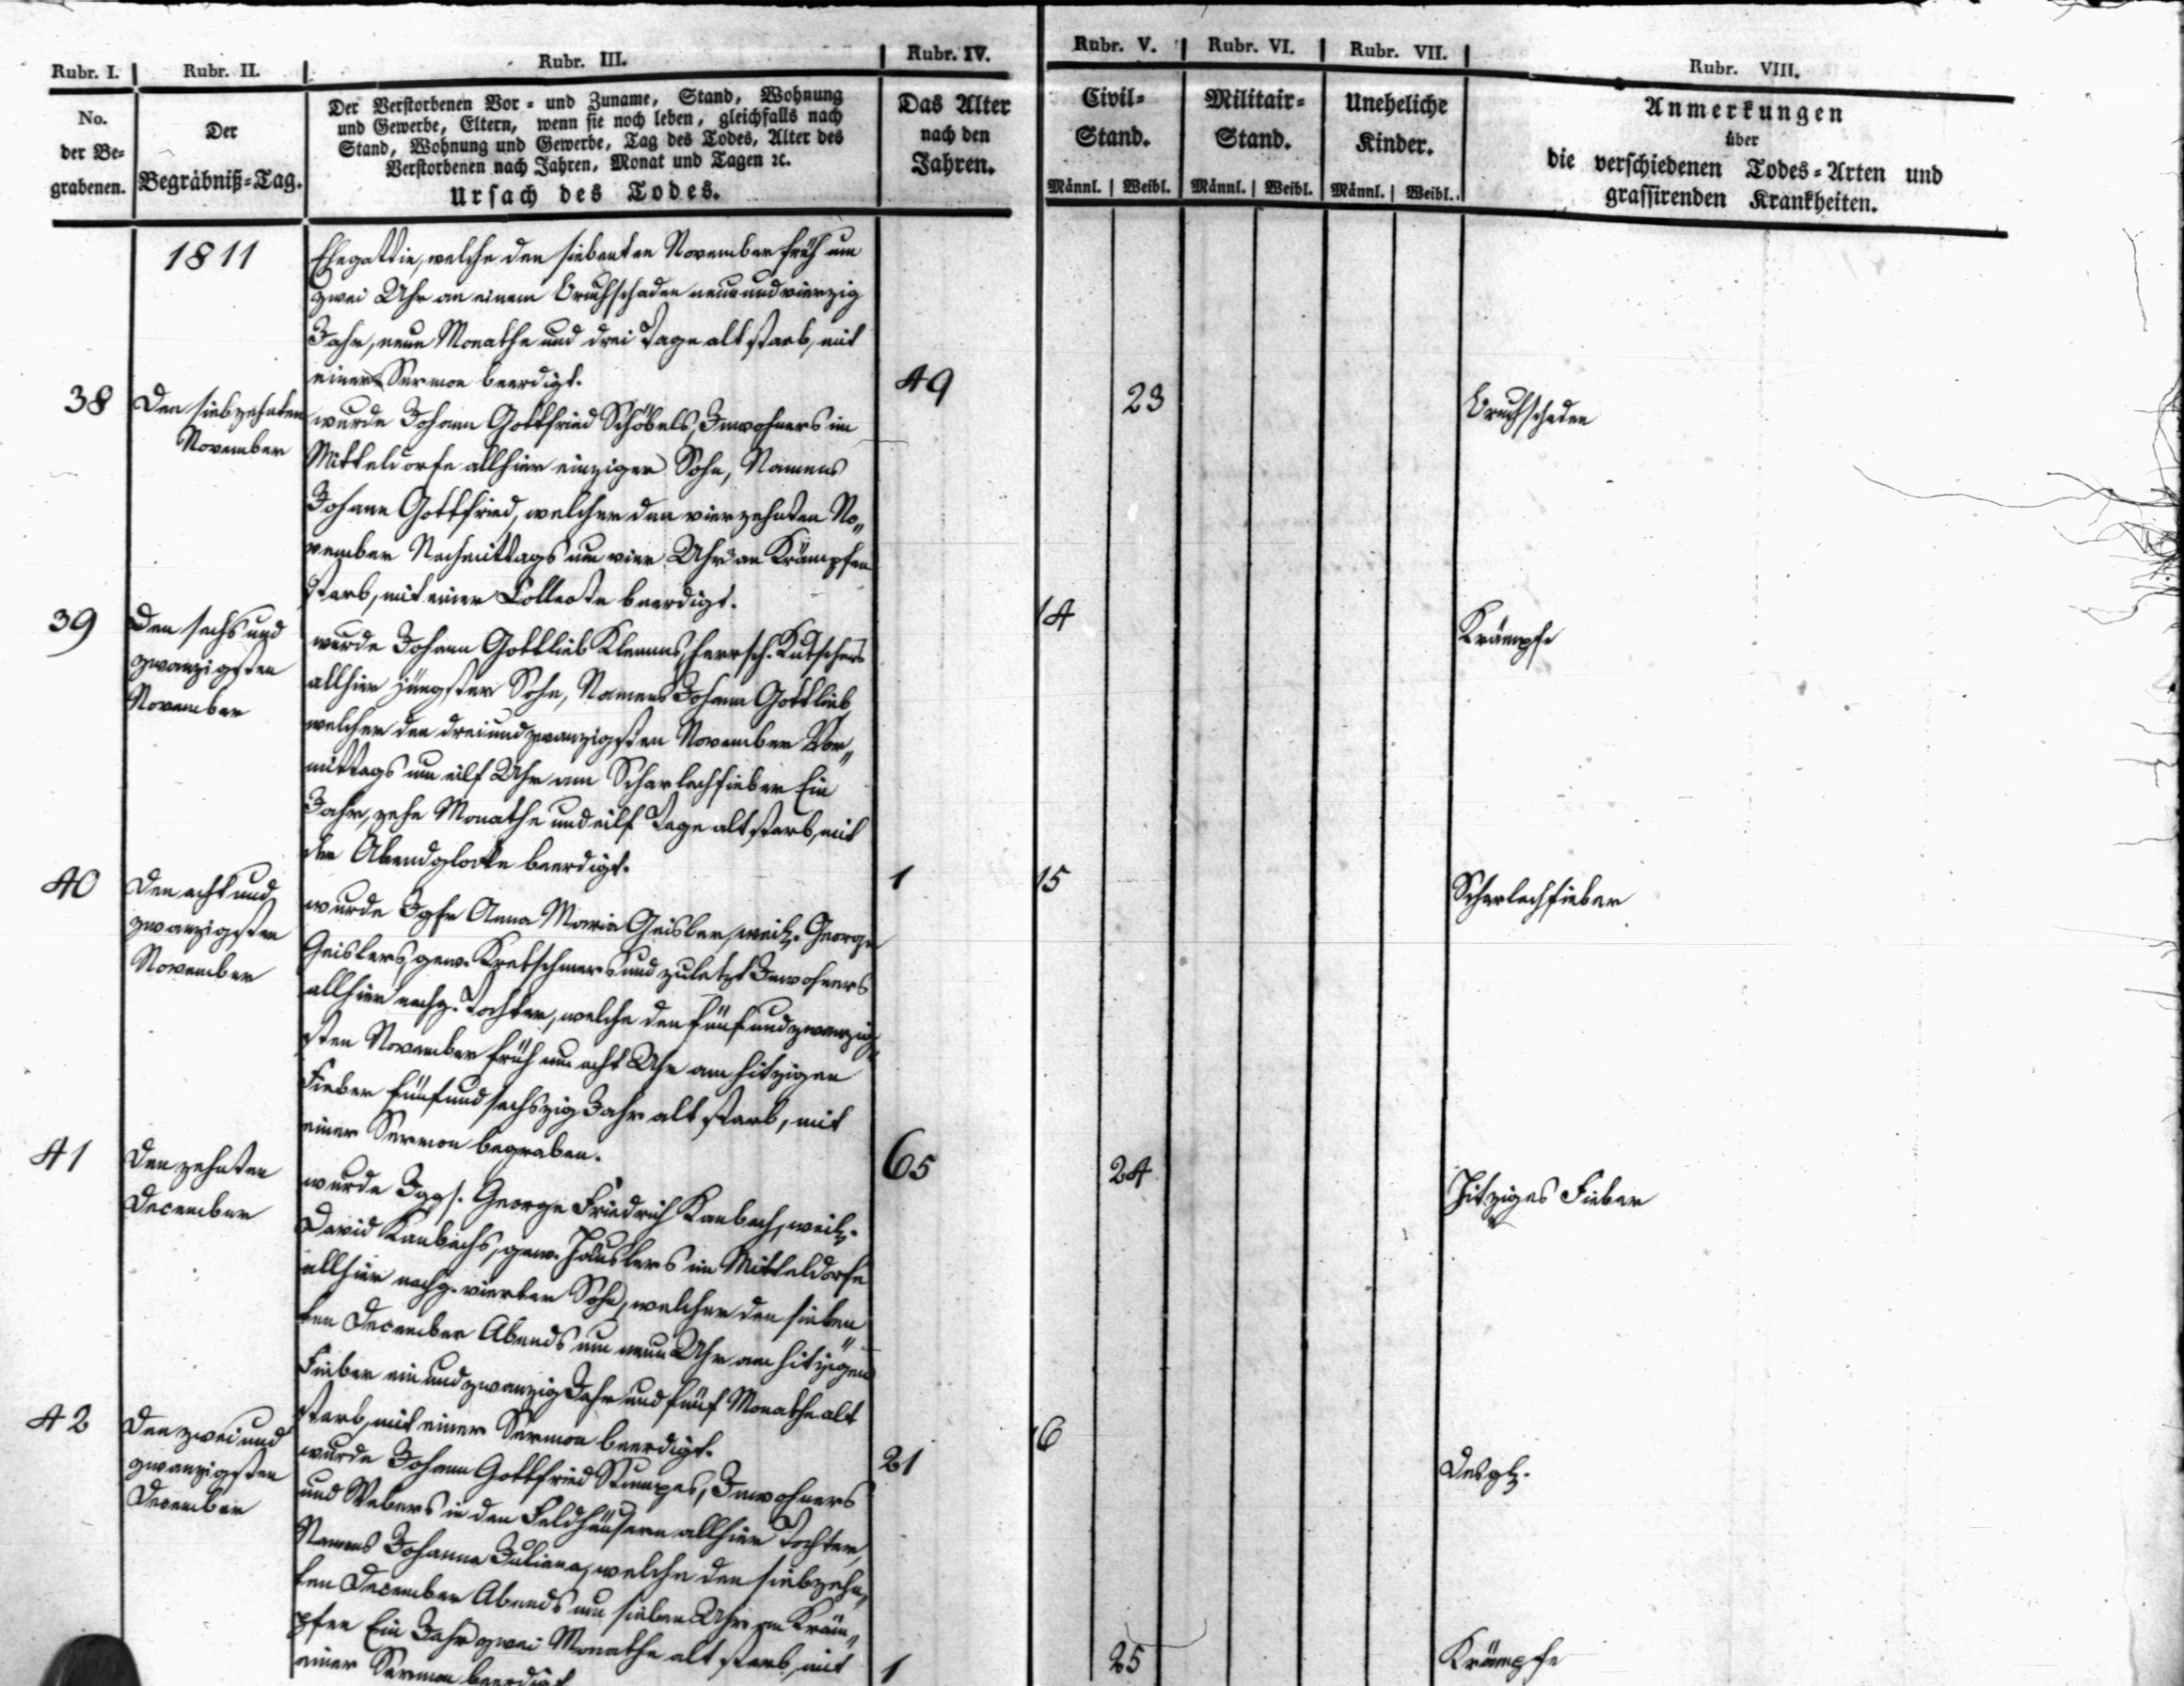 Rubr. I.
Rubr. II.
Rubr. III.
Rubr. IV.
Rubr. V.
Rubr. VI.
Rubr. VII.
Rubr. VIII.
No.
der Be-
grabenen.
Der
Begräbniß-Tag.
Der Verstorbenen Vor- und Zuname, Stand, Wohnung
und Gewerbe, Eltern, wenn sie noch leben, gleichfalls nach
Stand, Wohnung und Gewerbe, Tag des Todes, Alter des
Verstorbenen nach Jahren, Monat und Tagen ꝛc.
Ursach des Todes.
Das Alter
nach den
Jahren.
Civil-
Stand.
Männl. Weibl.
Militair-
Stand.
Männl. Weibl.
Uneheliche
Kinder.
Männl. Weibl.
Anmerkungen
über
die verschiedenen Todes-Arten und
grassirenden Krankheiten.
1811
Ehegattin, welche den siebenten November früh um
zwei Uhr an einem Bruchschaden neunundvierzig
Jahr, neun Monathe und drei Tage alt starb, mit
einer Sermon beerdigt.
49
23
Bruchschaden
38
Den siebzehnten
November
wurde Johann Gottfried Schöbels, Inwohners im
Mitteldorfe allhier einziger Sohn, Namens
Johann Gottfried, welcher den vierzehnten No„
vember Nachmittags um vier Uhr an Krämpfen
starb, mit einer Collecte beerdigt.
14
Krämpfe
39
Den sechs und
zwanzigsten
November
wurde Johann Gottlieb Klemms, herrsch. Kutschers
allhier jüngster Sohn, Namens Johann Gottlieb,
welcher den dreiundzwanzigsten November Vor„
mittags um eilf Uhr am Scharlachfieber Ein
Jahr, zehn Monathe und eilf Tage alt starb, mit
der Abendglocke beerdigt.
1
15
Scharlachfieber
40
Den acht und
zwanzigsten
November
wurde Jgfr Anna Maria Geisler, weil. George
Geislers, gew. Kretschmers und zuletzt Inwohners
allhier nachg. Tochter, welche den fünfundzwanzig„
sten November früh um acht Uhr am hitzigen
Fieber fünfundsechszig Jahr alt starb, mit
einer Sermon begraben.
65
24
Hitziges Fieber
41
Den zehnten
December
wurde Jggs. George Friedrich Kaubach, weil.
David Kaubachs, gew. Häuslers im Mitteldorfe
allhier nachg. vierter Sohn, welcher den sieben„
ten December Abends um neun Uhr am hitzigen
Fieber ein und zwanzig Jahr und fünf Monathe alt
starb, mit einer Sermon beerdigt.
21
16
Desgl.
42
Den zwei und
zwanzigsten
December
wurde Johann Gottfried Stumpes, Inwohners
und Webers in den Feldhäusern allhier Tochter,
Namens Johanne Juliane, welche den siebzehn„
ten December Abends um sieben Uhr an Kräm„
pfen Ein Jahr zwei Monathe alt starb, mit
einer Sermon beerdigt
1
25
Krämpfe